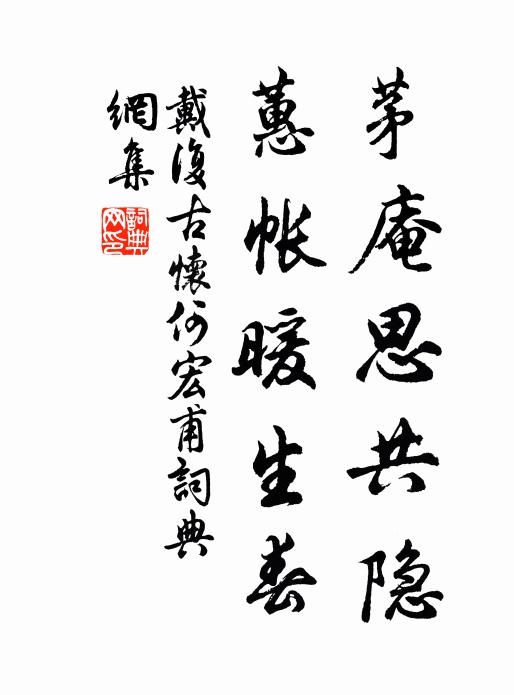 茅庵思共隐
蕙帐暖生春
戴復古懷何宏甫詞典
網集
詞典
网印